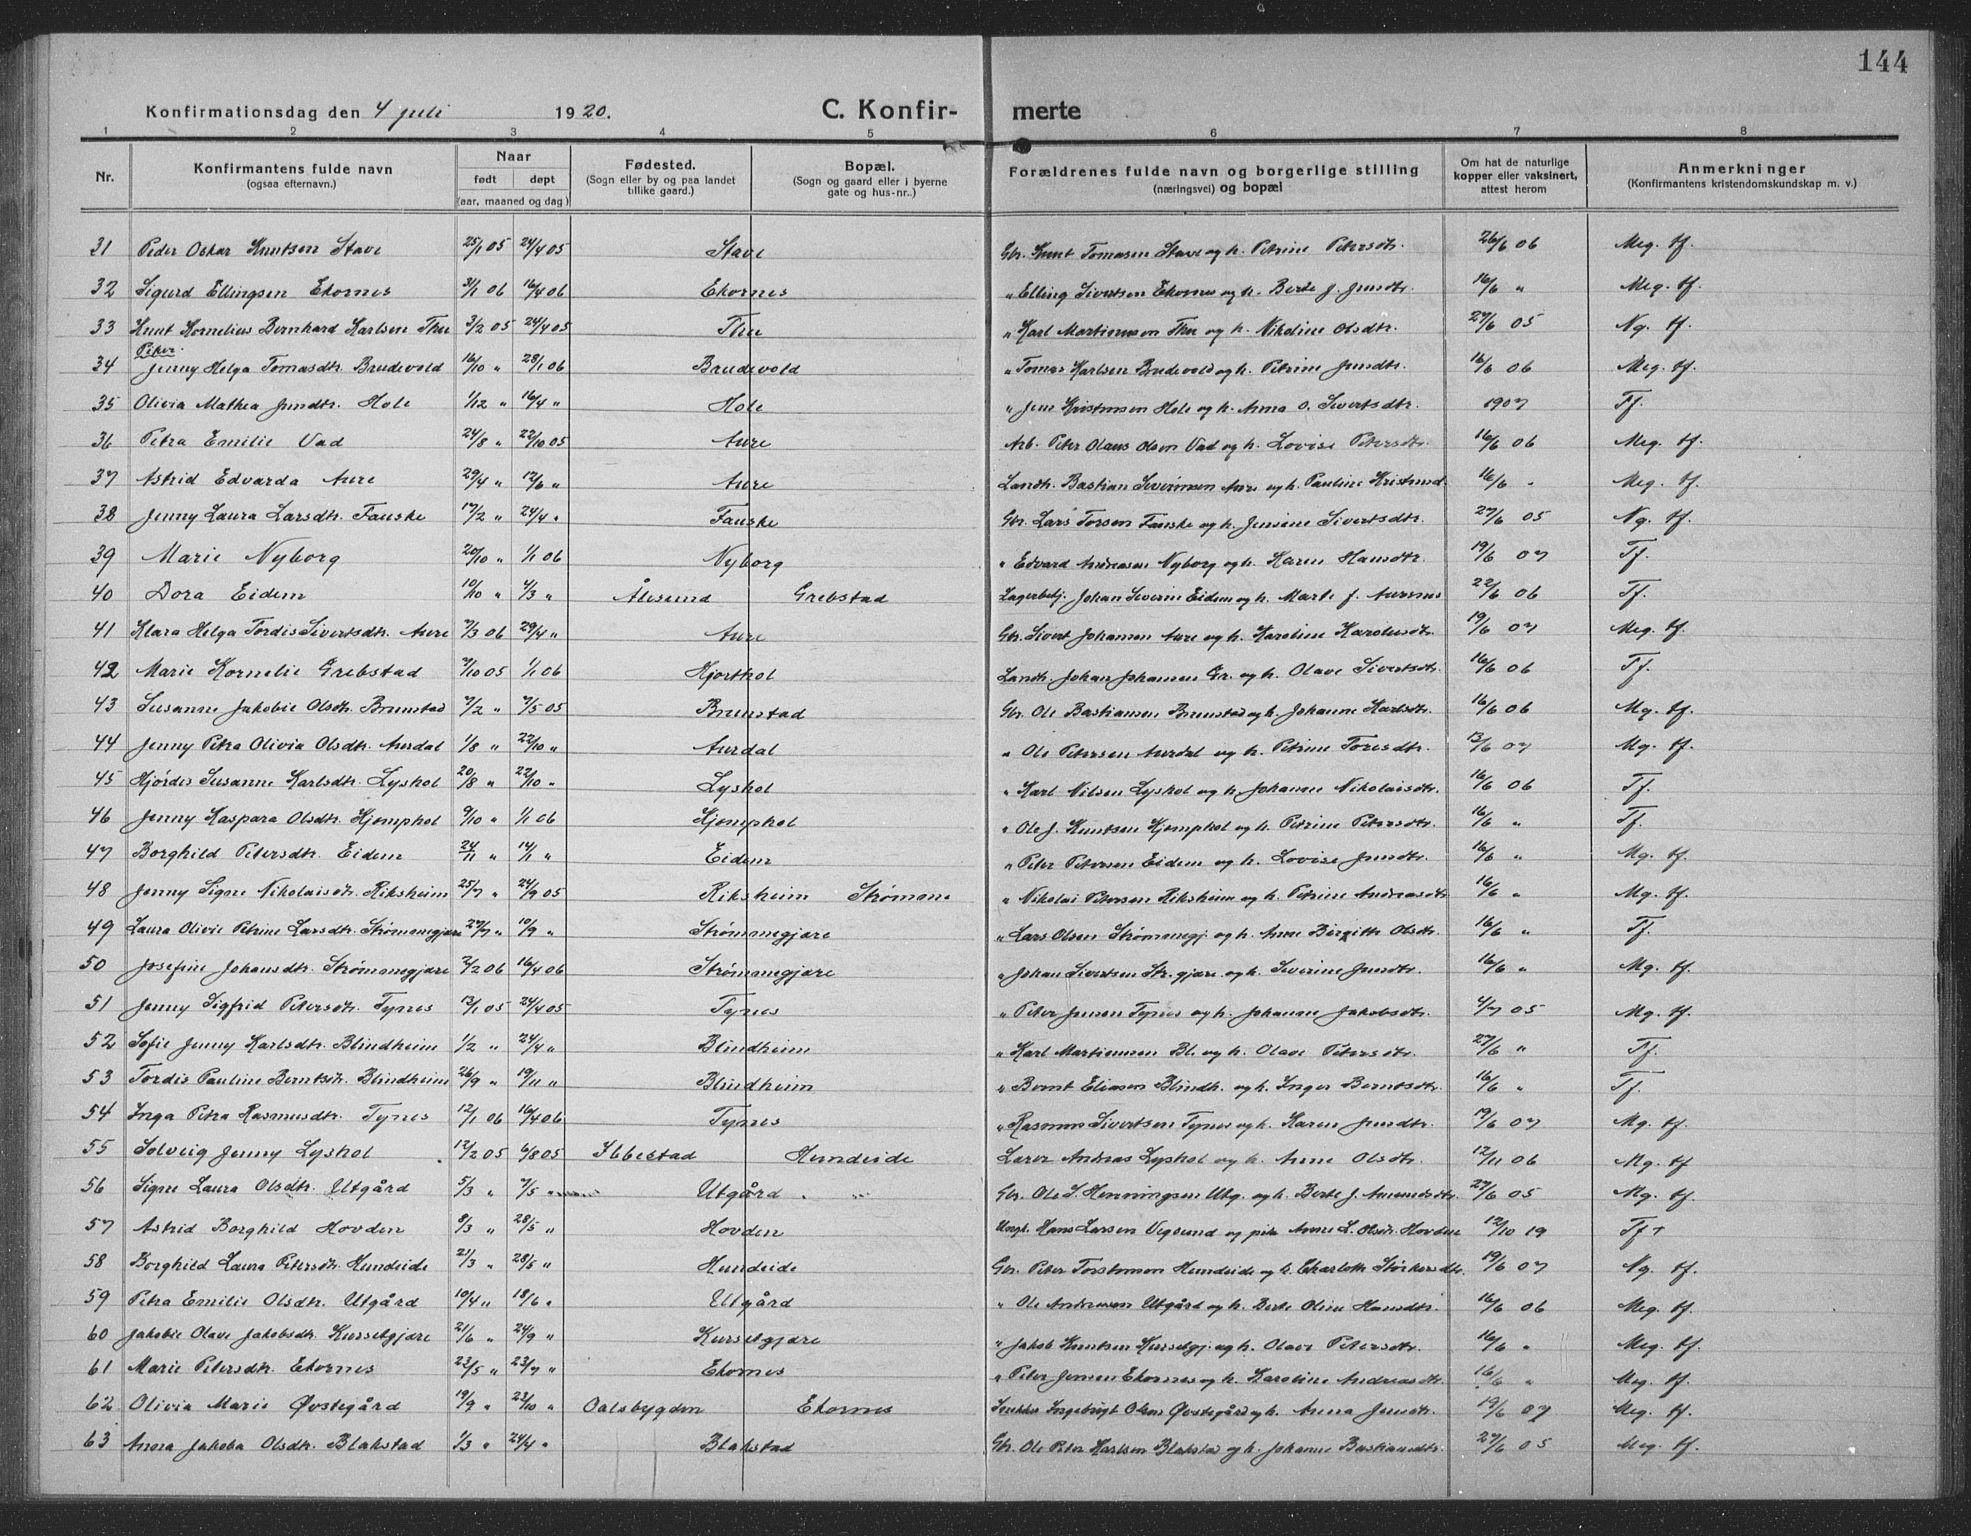 144
Konfirmationsdag den 4 juli 1920. C. Konfir- merte
1 2 3 4 5 6 7 8
Nr. Konfirmantens fulde navn (ogsaa efternavn.) Naar født døpt (aar, maaned og dag) Fødested. (Sogn eller by og paa landet tillike gaard.) Bopæl. (Sogn og gaard eller i byerne gate og hus-nr..) Forældrenes fulde navn og borgerlige stilling (næringsvei) og bopæl Om hat de naturlige kopper eller vaksinert, attest herom Anmerkninger (Konfirmantens kristendomskundskap m. v.)
31 Peder Oskar Knutsen Stave 25/1 05 24/4 05 Stave Gbr. Knut Tomasen Stave og h. Petrine Petersdtr. 26/6 06 Meg. tf.
32 Sigurd Ellingsen Ekornes 31/1 06 16/4 06 Ekornes " Elling Sivertsen Ekornes og h. Berte J. Jensdtr. 16/6 " Meg. tf.
33 Knut Kornelius Bernhard Karlsen Thu 3/2 05 24/4 05 Thu " Karl Martinussen Thu og h. Nikoline Olsdtr. 27/6 05 Ng. tf.
Piker.
34 Jenny Helga Tomasdtr. Brudevold 16/10 " 28/1 06 Brudevold " Tomas Karlsen Brudevold og h. Petrine Jensdtr. 16/6 06 Meg. tf.
35 Olivia Mathea Jensdtr. Hole 1/12 " 16/4 " Hole " Jens Kristensen Hole og h. Anna O. Sivertsdtr. 1907 Tf.
36 Petra Emilie Vad 24/8 " 22/10 05 Aure Arb. Peter Olaus Olsen Vad og h. Lovise Petersdtr. 16/6 06 Meg. tf.
37 Astrid Edvarda Aure 29/4 " 12/6 " Aure Landh. Bastian Severinsen Aure og h. Pauline Kristensd. 16/6 " Meg. tf.
38 Jenny Laura Larsdtr. Fauske 17/2 " 24/4 " Fauske Gbr. Lars Torsen Fauske og h. Jensine Sivertsdtr. 27/6 05 Ng. tf.
39 Marie Nyborg 20/10 " 1/1 06 Nyborg " Edvard Andreasen Nyborg og h. Karen Hansdtr. 19/6 07 Tf.
40 Dora Eidem 10/10 " 4/3 " Ålesund Grebstad Lagerbetj. Johan Severin Eidem og h. Marte J. Aursnes 22/6 06 Tf.
41 Klara Helga Tordis Sivertsdtr. Aure 7/3 06 29/4 " Aure Gbr. Sivert Johansen Aure og h. Karoline Karolusdtr. 19/6 07 Meg. tf.
42 Marie Kornelie Grebstad 7/10 05 1/1 06 Hjorthol Landh. Johan Johansen Gr. og h. Olave Sivertsdtr. 16/6 06 Tf.
43 Susanne Jakobie Olsdtr. Brunstad 7/2 " 7/5 05 Brunstad Gbr. Ole Bastiansen Brunstad og h. Johanne Karlsdtr. 16/6 06 Mg. tf.
44 Jenny Petra Olivia Olsdtr. Aurdal 1/8 " 22/10 " Aurdal " Ole Petersen Aurdal og h. Petrine Toresdtr. 13/6 07 Mg. tf.
45 Hjørdis Susanne Karlsdtr. Lyshol 20/8 " 22/10 " Lyshol " Karl Nilsen Lyshol og h. Johanne Nikolaisdtr. 16/6 06 Tf.
46 Jenny Kaspara Olsdtr. Hjomphol 9/10 " 1/1 06 Hjomphol " Ole J. Knutsen Hjomphol og h. Petrine Petersdtr. 16/6 " Tf.
47 Borghild Petersdtr. Eidem 24/11 " 14/1 " Eidem " Peter Petersen Eidem og h. Lovise Jensdtr. 16/6 " Mg. tf.
48 Jenny Signe Nikolaisdtr. Riksheim 25/7 " 24/9 05 Riksheim Strømane " Nikolai Petersen Riksheim og h. Petrine Andreasdtr. 16/6 " Mg. tf.
49 Laura Olivie Petrine Larsdtr. Strømmegjære 27/7 " 10/9 " Strømmegjære " Lars Olsen Strømmegj. og h. Anne Birgitte Olsdtr. 16/6 " Tf.
50 Josefine Johansdtr. Strømmegjære 2/2 06 16/4 06 Strømmegjære " Johan Sivertsen Str.gjære og h. Severine Jensdtr. 16/6 " Mg. tf.
51 Jenny Sigfrid Petersdtr. Tynes 13/1 05 24/4 05 Tynes " Peter Jensen Tynes og h. Johanne Jakobsdtr. 4/7 05 Mg. tf.
52 Sofie Jenny Karlsdtr. Blindheim 1/2 " 24/4 " Blindheim " Karl Martinusen Bl. og h. Olave Petersdtr. 27/6 " Tf.
53 Tordis Pauline Berntsdtr. Blindheim 26/9 " 19/11 " Blindheim " Bernt Eliasen Blindh. og h. Inger Berntsdtr. 16/6 " Tf.
54 Inga Petra Rasmusdtr. Tynes 12/1 06 16/4 06 Tynes " Rasmus Sivertsen Tynes og h. Karen Jensdtr. 19/6 07 Mg. tf.
55 Solveig Jenny Lyshol 12/2 05 6/8 05 Ibbestad Hundeide Lærer Andreas Lyshol og h. Anne Olsdtr. 12/11 06 Mg. tf
56 Signe Laura Olsdtr. Utgård 5/3 " 7/5 " Utgård Gbr. Ole S. Henningsen Utg. og h. Berte J. Amundsdtr. 27/6 05 Mg. tf.
57 Astrid Borghild Hovden 8/3 " 28/5 " Hovden Ungk. Hans Larsen Vegsund og pike Anne L. Olsdtr. Hovden 12/10 19 Tf +
58 Borghild Laura Petersdtr. Hundeide 21/3 " 28/5 " Hundeide Gbr. Peter Torstensen Hundeide og h. Charlotte Størkersdtr. 19/6 07 Ng. tf.
59 Petra Emilie Olsdtr. Utgård 10/4 " 18/6 " Utgård " Ole Andreasen Utgård og h. Berte Oline Hansdtr. 16/6 06 Meg. tf.
60 Jakobie Olave Jakobsdtr. Kursetgjære 21/6 " 24/9 " Kursetgjære " Jakob Knutsen Kursetgj. og h. Olave Petersdtr. 16/6 " Meg. tf.
61 Marie Petersdtr. Ekornes 22/5 " 23/7 " Ekornes " Peter Jensen Ekornes og h. Karoline Andreasdtr. 16/6 " Meg. tf.
62 Olivia Marie Øvstegård 19/9 " 23/10 " Oalsbygden Ekornes Ingebrigt Olsen Øvstegård og h. Anna Jensdtr. 19/6 07 Meg. tf.
63 Anna Jakoba Olsdtr. Blakstad 1/3 " 24/4 " Blakstad Gbr. Ole Peter Karlsen Blakstad og h. Johanne Bastiansdtr. 27/6 05 Meg. tf.